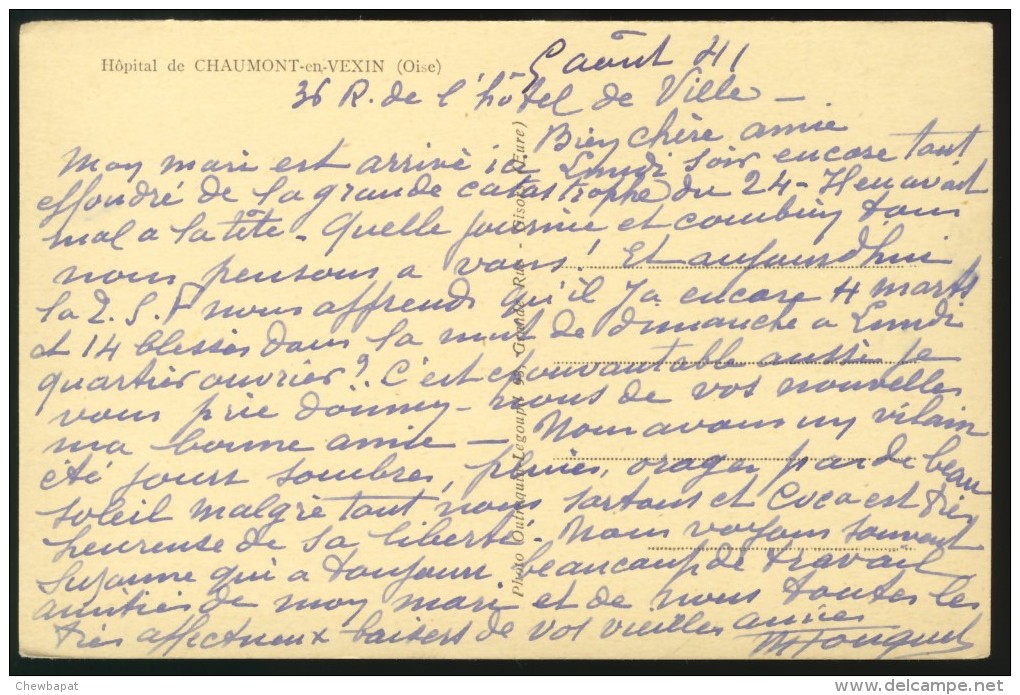 Hôpital de CHAUMONT-en-VEXIN (Oise)
5 août 41
36 R. de l'hôtel de Ville -
Bien chère amie
Mon mari est arrivé ici Lundi soir encore tout
effondré de la grande catastrophe du 24 - Il en avait
mal a la tête - Quelle journée et combien tous
nous pensons a vous! Et aujourdhui
la T.S.F nous affrends qu'il y a encore 4 morts
et 14 blessés dans la nuit de dimanche a Lundi
quartier ouvrier? C'est épouvantable aussi je
vous prie donnez-nous de vos nouvelles
ma bonne amie - Nous avons un vilain
été jours sombres, pluies, orages, pas de beau
soleil malgré tout nous sortons et Coco est très
heureuse de sa liberté - Nous voyons souvent
Suzanne qui a toujours beaucoup de travail
amitiés de mon mari et de nous toutes les
très affectueux baisers de vos vieilles amies
MFouquet
Photo Outrequin-Legoupil 93, Grande Rue - Gisors (Eure)
Chewbapat
delcampe.net